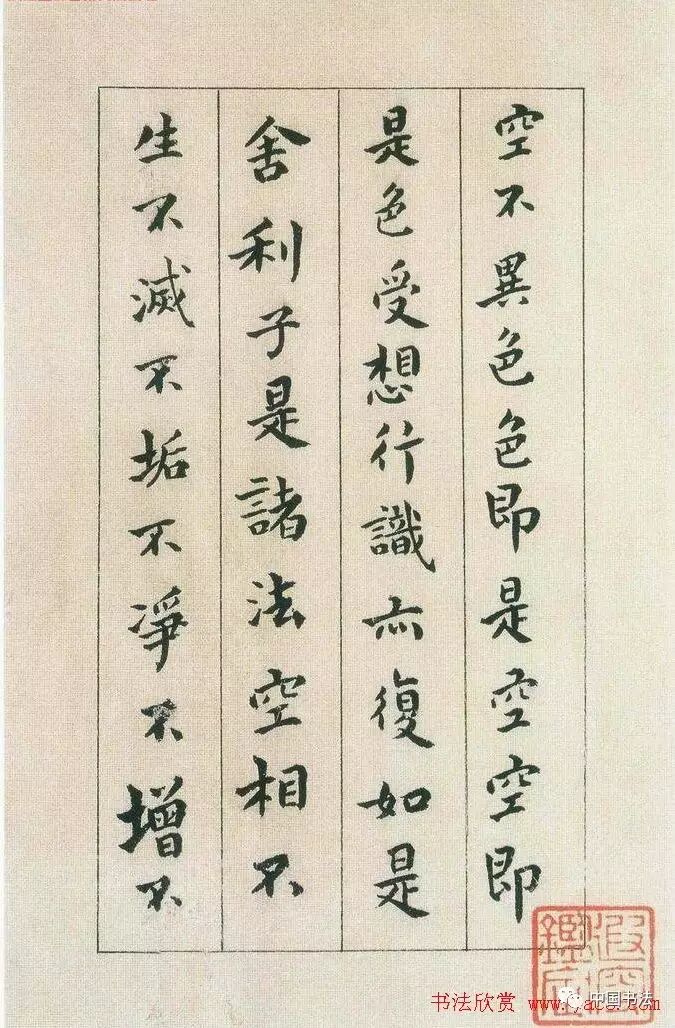 空不異色色即是空空即
是色受想行識亦復如是
舍利子是諸法空相不
生不滅不垢不凈不增不
书法欣赏
中国书法